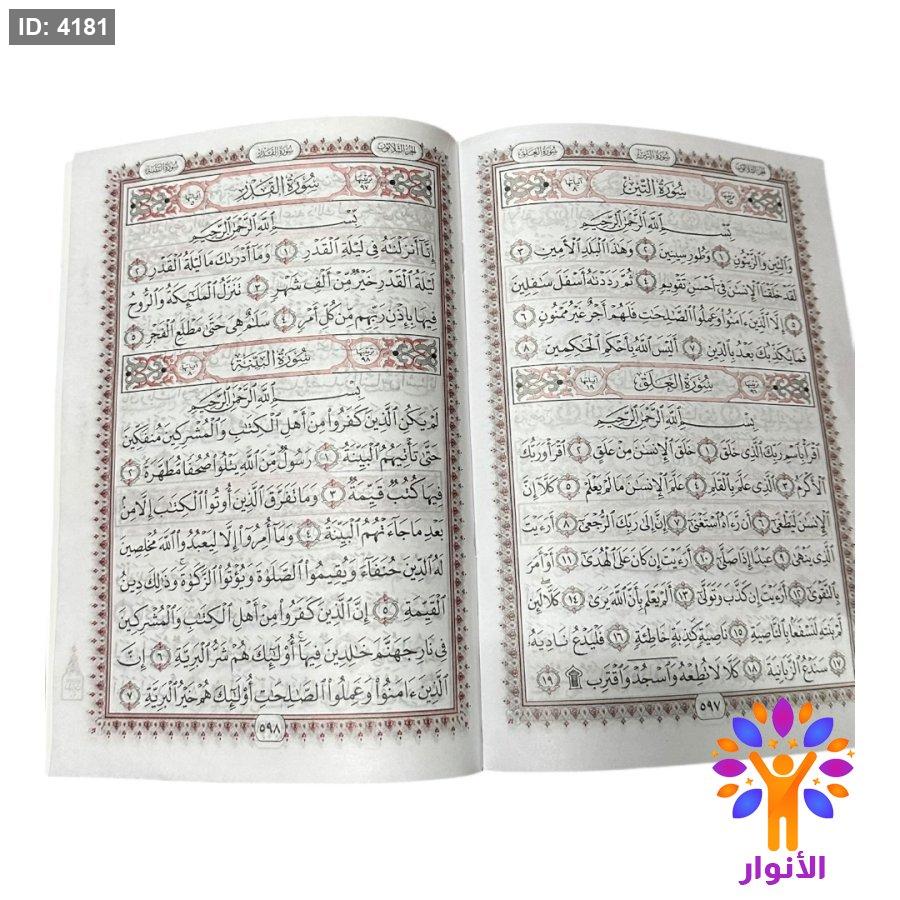 ID: 4181
الجزء الثلاثون
سورة التين
سورة العلق
سورة التين
ترتيبها ٩٥
آياتها ٨
بسم الله الرحمن الرحيم
وَالتِّينِ وَالزَّيْتُونِ ١ وَطُورِ سِينِينَ ٢ وَهَٰذَا الْبَلَدِ الْأَمِينِ ٣
لَقَدْ خَلَقْنَا الْإِنسَٰنَ فِي أَحْسَنِ تَقْوِيمٍ ٤ ثُمَّ رَدَدْنَٰهُ أَسْفَلَ سَٰفِلِينَ
٥ إِلَّا الَّذِينَ ءَامَنُوا وَعَمِلُوا الصَّٰلِحَٰتِ فَلَهُمْ أَجْرٌ غَيْرُ مَمْنُونٍ ٦
فَمَا يُكَذِّبُكَ بَعْدُ بِالدِّينِ ٧ أَلَيْسَ اللَّهُ بِأَحْكَمِ الْحَٰكِمِينَ ٨
سورة العلق
ترتيبها ٩٦
آياتها ١٩
بسم الله الرحمن الرحيم
اقْرَأْ بِاسْمِ رَبِّكَ الَّذِي خَلَقَ ١ خَلَقَ الْإِنسَٰنَ مِنْ عَلَقٍ ٢ اقْرَأْ وَرَبُّكَ
الْأَكْرَمُ ٣ الَّذِي عَلَّمَ بِالْقَلَمِ ٤ عَلَّمَ الْإِنسَٰنَ مَا لَمْ يَعْلَمْ ٥ كَلَّا إِنَّ
الْإِنسَٰنَ لَيَطْغَىٰ ٦ أَن رَّءَاهُ اسْتَغْنَىٰ ٧ إِنَّ إِلَىٰ رَبِّكَ الرُّجْعَىٰ ٨ أَرَءَيْتَ
الَّذِي يَنْهَىٰ ٩ عَبْدًا إِذَا صَلَّىٰ ١٠ أَرَءَيْتَ إِن كَانَ عَلَى الْهُدَىٰ ١١ أَوْ أَمَرَ
بِالتَّقْوَىٰ ١٢ أَرَءَيْتَ إِن كَذَّبَ وَتَوَلَّىٰ ١٣ أَلَمْ يَعْلَم بِأَنَّ اللَّهَ يَرَىٰ ١٤ كَلَّا لَئِن
لَّمْ يَنتَهِ لَنَسْفَعًا بِالنَّاصِيَةِ ١٥ نَاصِيَةٍ كَٰذِبَةٍ خَاطِئَةٍ ١٦ فَلْيَدْعُ نَادِيَهُ
١٧ سَنَدْعُ الزَّبَانِيَةَ ١٨ كَلَّا لَا تُطِعْهُ وَاسْجُدْ وَاقْتَرِب ۩ ١٩
٥٩٧
الجزء الثلاثون
سورة القدر
سورة البينة
سورة القدر
ترتيبها ٩٧
آياتها ٥
بسم الله الرحمن الرحيم
إِنَّا أَنزَلْنَٰهُ فِي لَيْلَةِ الْقَدْرِ ١ وَمَا أَدْرَىٰكَ مَا لَيْلَةُ الْقَدْرِ ٢
لَيْلَةُ الْقَدْرِ خَيْرٌ مِّنْ أَلْفِ شَهْرٍ ٣ تَنَزَّلُ الْمَلَٰئِكَةُ وَالرُّوحُ
فِيهَا بِإِذْنِ رَبِّهِم مِّن كُلِّ أَمْرٍ ٤ سَلَٰمٌ هِيَ حَتَّىٰ مَطْلَعِ الْفَجْرِ ٥
سورة البينة
ترتيبها ٩٨
آياتها ٨
بسم الله الرحمن الرحيم
لَمْ يَكُنِ الَّذِينَ كَفَرُوا مِنْ أَهْلِ الْكِتَٰبِ وَالْمُشْرِكِينَ مُنفَكِّينَ
حَتَّىٰ تَأْتِيَهُمُ الْبَيِّنَةُ ١ رَسُولٌ مِّنَ اللَّهِ يَتْلُوا صُحُفًا مُّطَهَّرَةً ٢
فِيهَا كُتُبٌ قَيِّمَةٌ ٣ وَمَا تَفَرَّقَ الَّذِينَ أُوتُوا الْكِتَٰبَ إِلَّا مِن
بَعْدِ مَا جَاءَتْهُمُ الْبَيِّنَةُ ٤ وَمَا أُمِرُوا إِلَّا لِيَعْبُدُوا اللَّهَ مُخْلِصِينَ
لَهُ الدِّينَ حُنَفَاءَ وَيُقِيمُوا الصَّلَوٰةَ وَيُؤْتُوا الزَّكَوٰةَ وَذَٰلِكَ دِينُ
الْقَيِّمَةِ ٥ إِنَّ الَّذِينَ كَفَرُوا مِنْ أَهْلِ الْكِتَٰبِ وَالْمُشْرِكِينَ
فِي نَارِ جَهَنَّمَ خَٰلِدِينَ فِيهَا أُولَٰئِكَ هُمْ شَرُّ الْبَرِيَّةِ ٦ إِنَّ
الَّذِينَ ءَامَنُوا وَعَمِلُوا الصَّٰلِحَٰتِ أُولَٰئِكَ هُمْ خَيْرُ الْبَرِيَّةِ ٧
٥٩٨
الأنوار